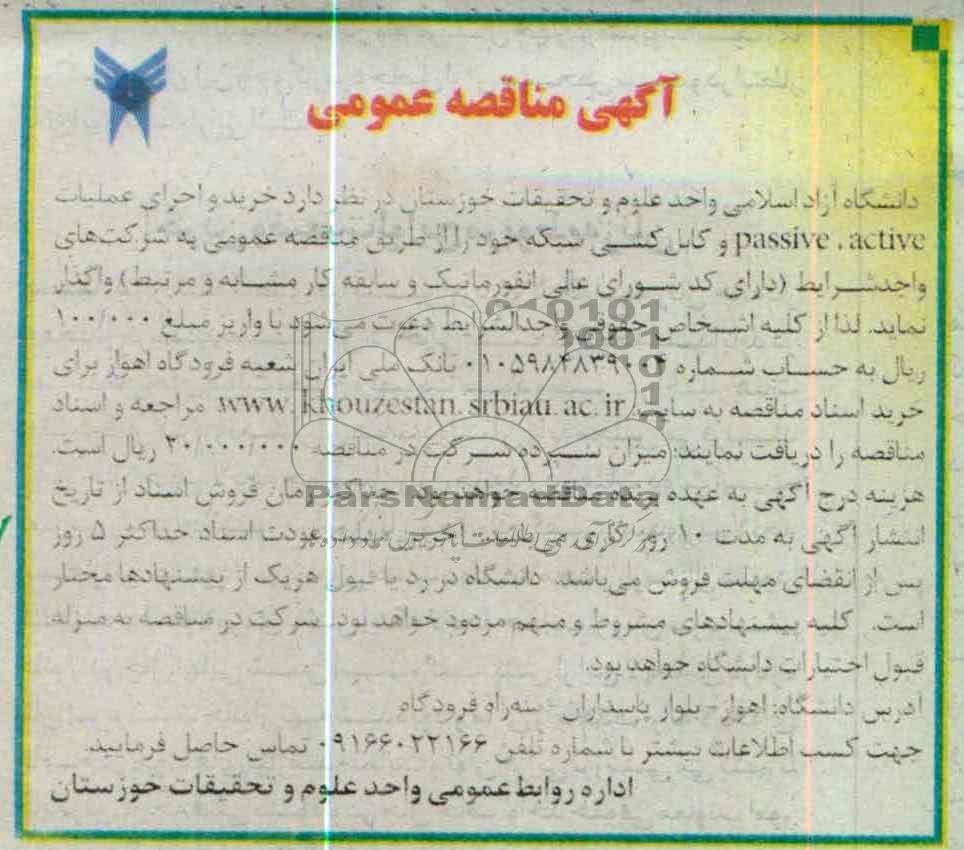 آگهی مناقصه عمومی
دانشگاه آزاد اسلامی واحد علوم و تحقیقات خوزستان در نظر دارد خرید و اجرای عملیات
passive , active و کابل کشی شبکه خود را از طریق مناقصه عمومی به شرکت‌های
واجدشرایط (دارای کد شورای عالی انفورماتیک و سابقه کار مشابه و مرتبط) واگذار
نماید. لذا از کلیه اشخاص حقوقی واجدالشرایط دعوت می‌شود با واریز مبلغ ۱۰۰/۰۰۰
ریال به حساب شماره بانک ملی ایران شعبه فرودگاه اهواز برای
خرید اسناد مناقصه به سایت www.khouzestan.srbiau.ac.ir مراجعه و اسناد
مناقصه را دریافت نمایند. میزان سپرده شرکت در مناقصه ۲۰/۰۰۰/۰۰۰ ریال است.
هزینه درج آگهی به عهده برنده مناقصه خواهد بود. حداکثر زمان فروش اسناد از تاریخ
انتشار آگهی به مدت ۱۰ روز کاری می‌باشد. آخرین مهلت عودت اسناد حداکثر ۵ روز
پس از انقضای مهلت فروش می‌باشد. دانشگاه در رد یا قبول هریک از پیشنهادها مختار
است. کلیه پیشنهادهای مشروط و مبهم مردود خواهد بود. شرکت در مناقصه به منزله
قبول اختیارات دانشگاه خواهد بود.
آدرس دانشگاه: اهواز - بلوار پاسداران - سه‌راه فرودگاه
جهت کسب اطلاعات بیشتر با شماره تلفن ۰۹۱۶۶۰۲۲۱۶۶ تماس حاصل فرمایید.
اداره روابط عمومی واحد علوم و تحقیقات خوزستان
ParsNamadData